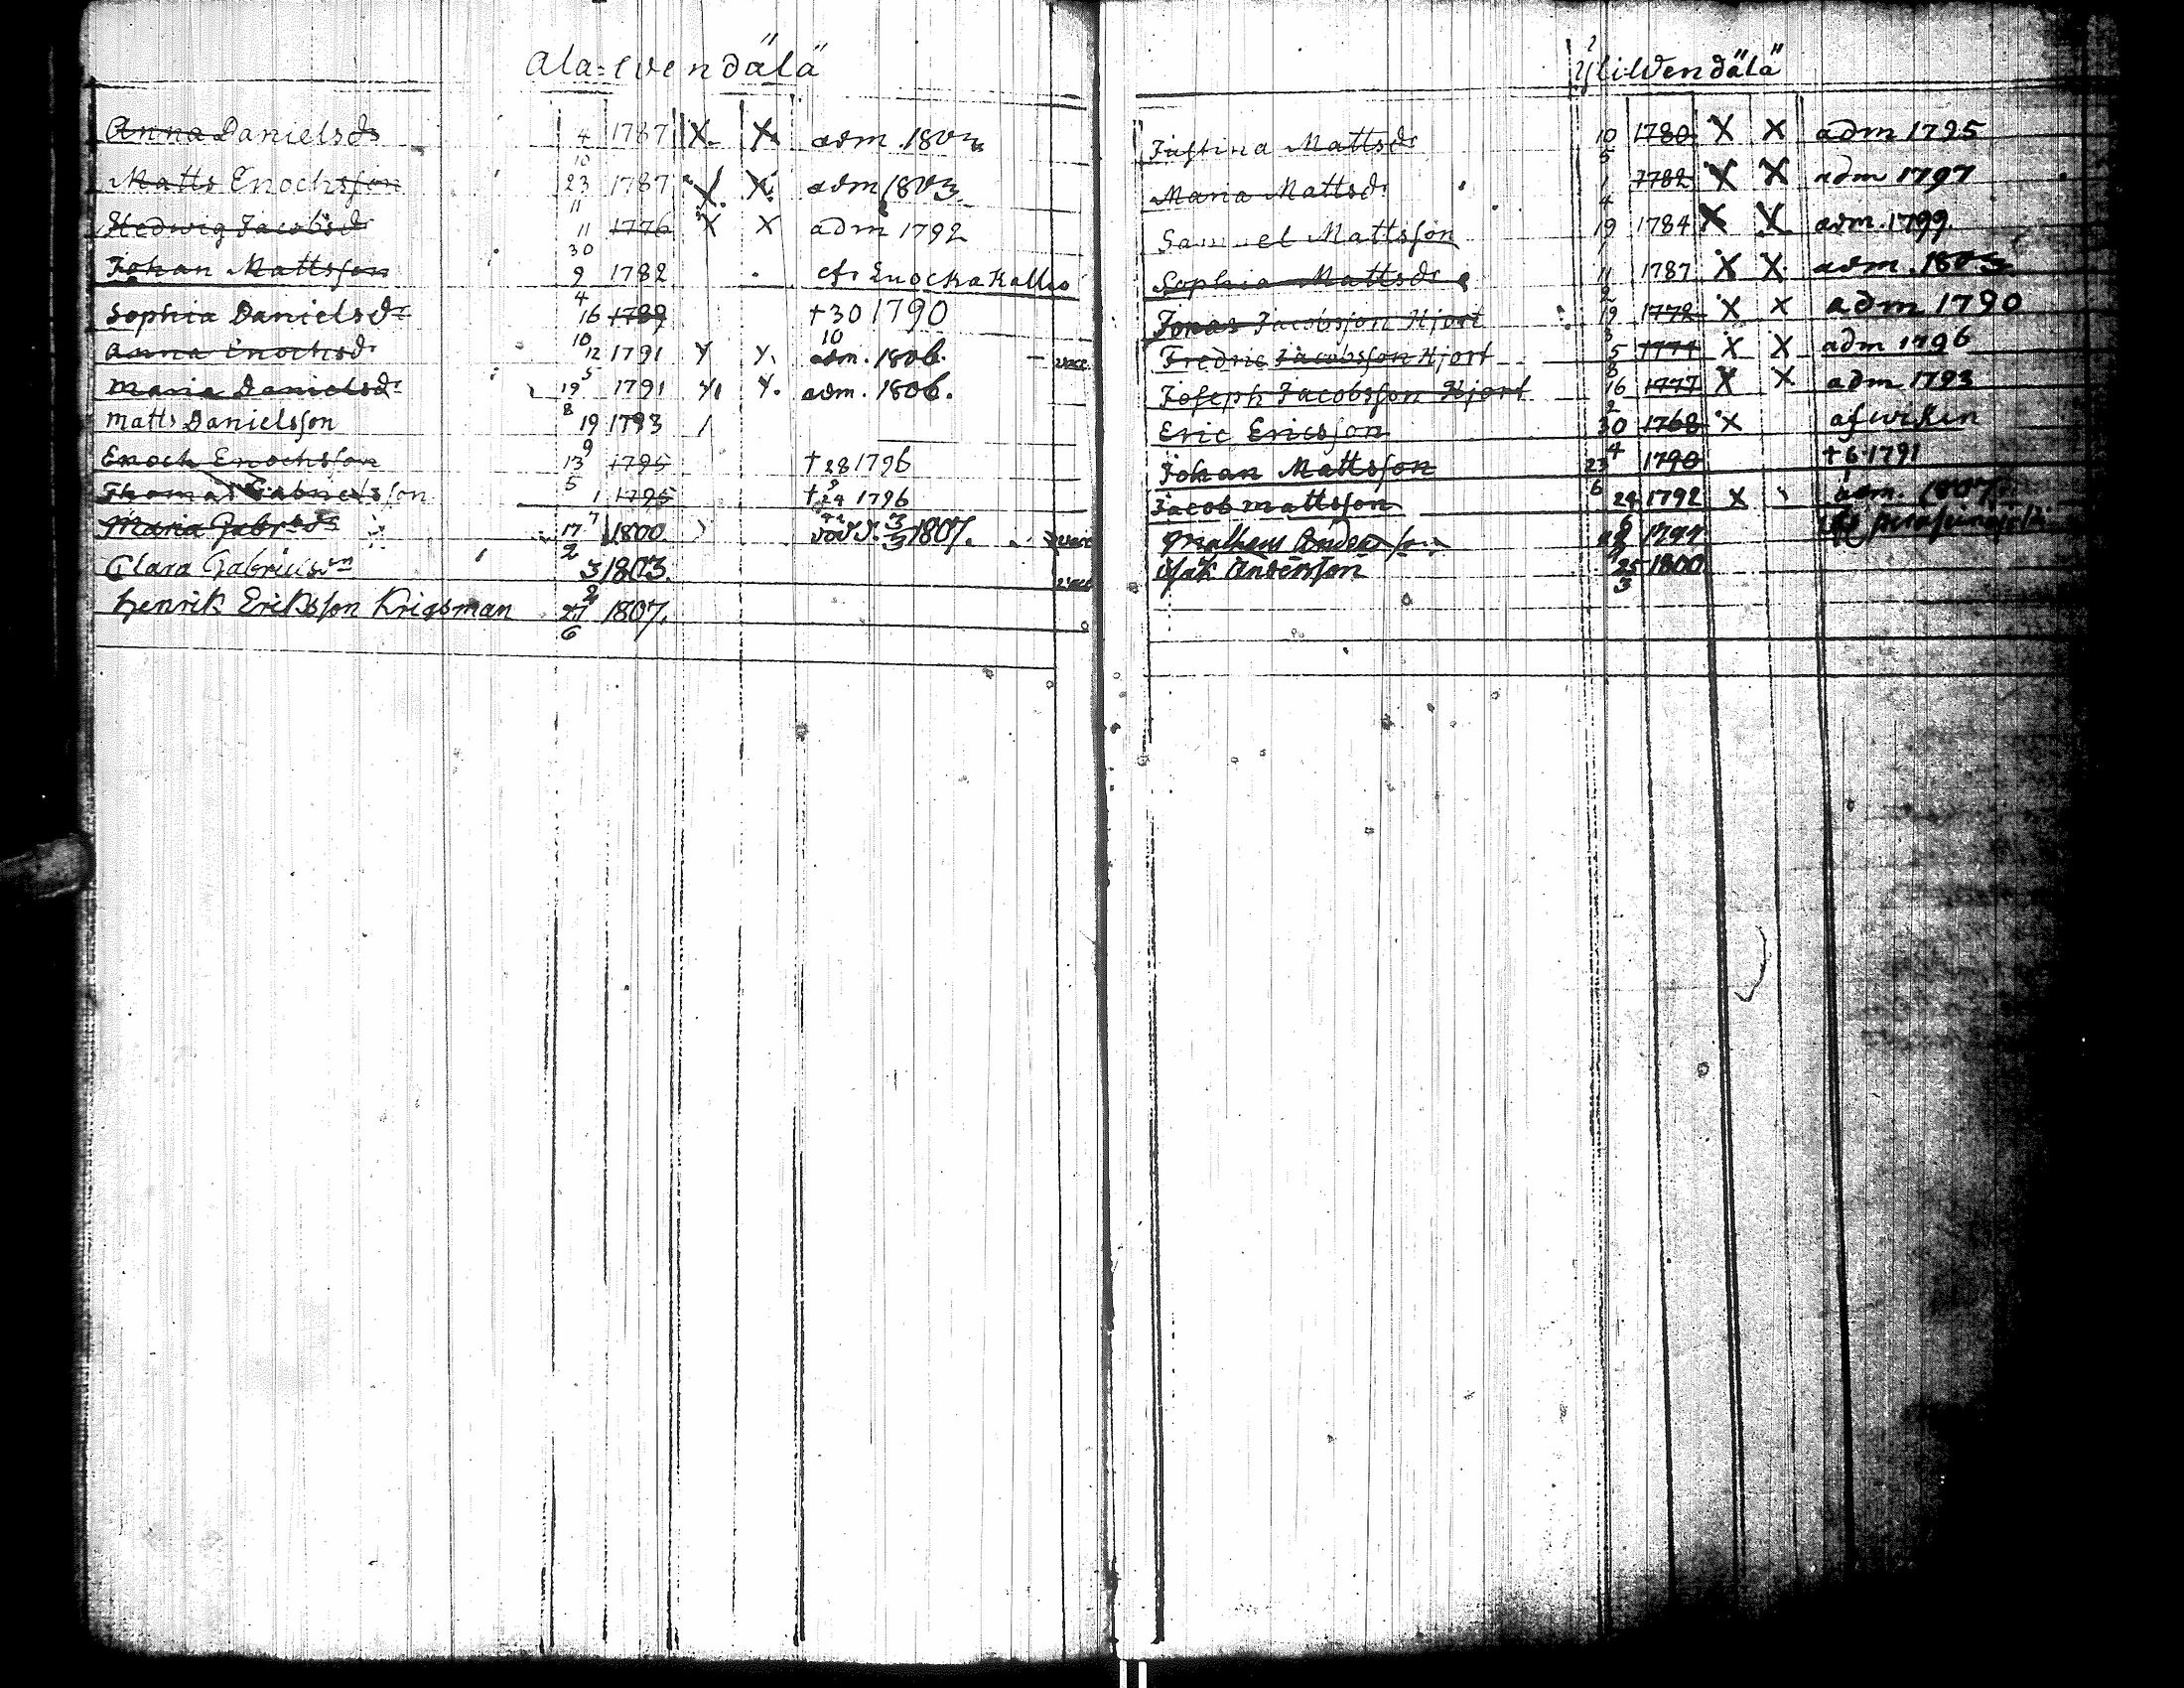 Ala=wendälä
Anna Danielsdr 4/10 1787 X X adm. 1802
Matts Enochsson 23/11 1787 X X adm 1803
Hedwig Jacobsdr 11/30 1776 X X adm 1792
Johan Mattsson 9/4 1782 cfr Enockakallio
Sophia Danielsdr 16/10 1789 † 30/10 1790
Anna Enochsdr 12/5 1791 X X. adm. 1806.
Maria Danielsdr 19/8 1791 X X. adm. 1806.
Matts Danielsson 19/9 1793 /
Enoch Enochsson 13/5 1795 † 28/9 1796
Thomas Gabrielsson 1/7 1795 † 24 1796
Maria Gabr:dr 17/2 1800 död d. 3/3 1807.
Clara 3/2 1803.
Henrik Eriksson Krigsman 27/6 1807.
Yliwendälä
Justina Mattsdr 10/5 1780 X X adm 1795
Maria Mattsdr 1/4 1782 X X adm 1797
Samuel Mattsson 19/1 1784 X X adm. 1799.
Sophia Mattsdr 11/2 1787 X X adm. 1803
Jonas Jacobsson Hjort 19/3 1772 X X adm 1790
Fredric Jacobsson Hjort 5/8 1774 X X adm 1796
Joseph Jacobsson Hjort 16/2 1777 X X adm 1793
Eric Ericsson 30/4 1768 X afwiken
Johan Mattsson 23/6 1790 † 6/1 1791
Jacob Mattsson 24/6 1792 X adm. 1807.
Matheus Andersson 1797
Isak Andersson 25/3 1800.